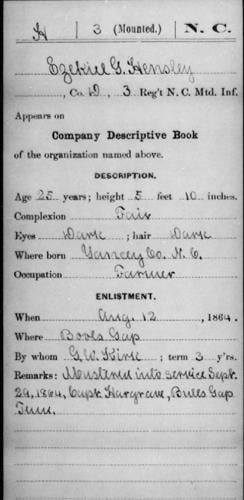 H | 3 (Mounted.) | N. C.
Ezekiel G. Hensley
, Co. D, 3 Reg't N. C. Mtd. Inf.
Appears on
Company Descriptive Book
of the organization named above.
DESCRIPTION.
Age 25 years; height 5 feet 10 inches.
Complexion Fair
Eyes Dark; hair Dark
Where born Yancey Co. N. C.
Occupation Farmer
ENLISTMENT.
When Aug. 12, 1864.
Where Bools Gap
By whom G. W. Kirk; term 3 y'rs.
Remarks: Mustered into service Sept.
29, 1864, Capt. Hargrave, Bulls Gap
Tenn.